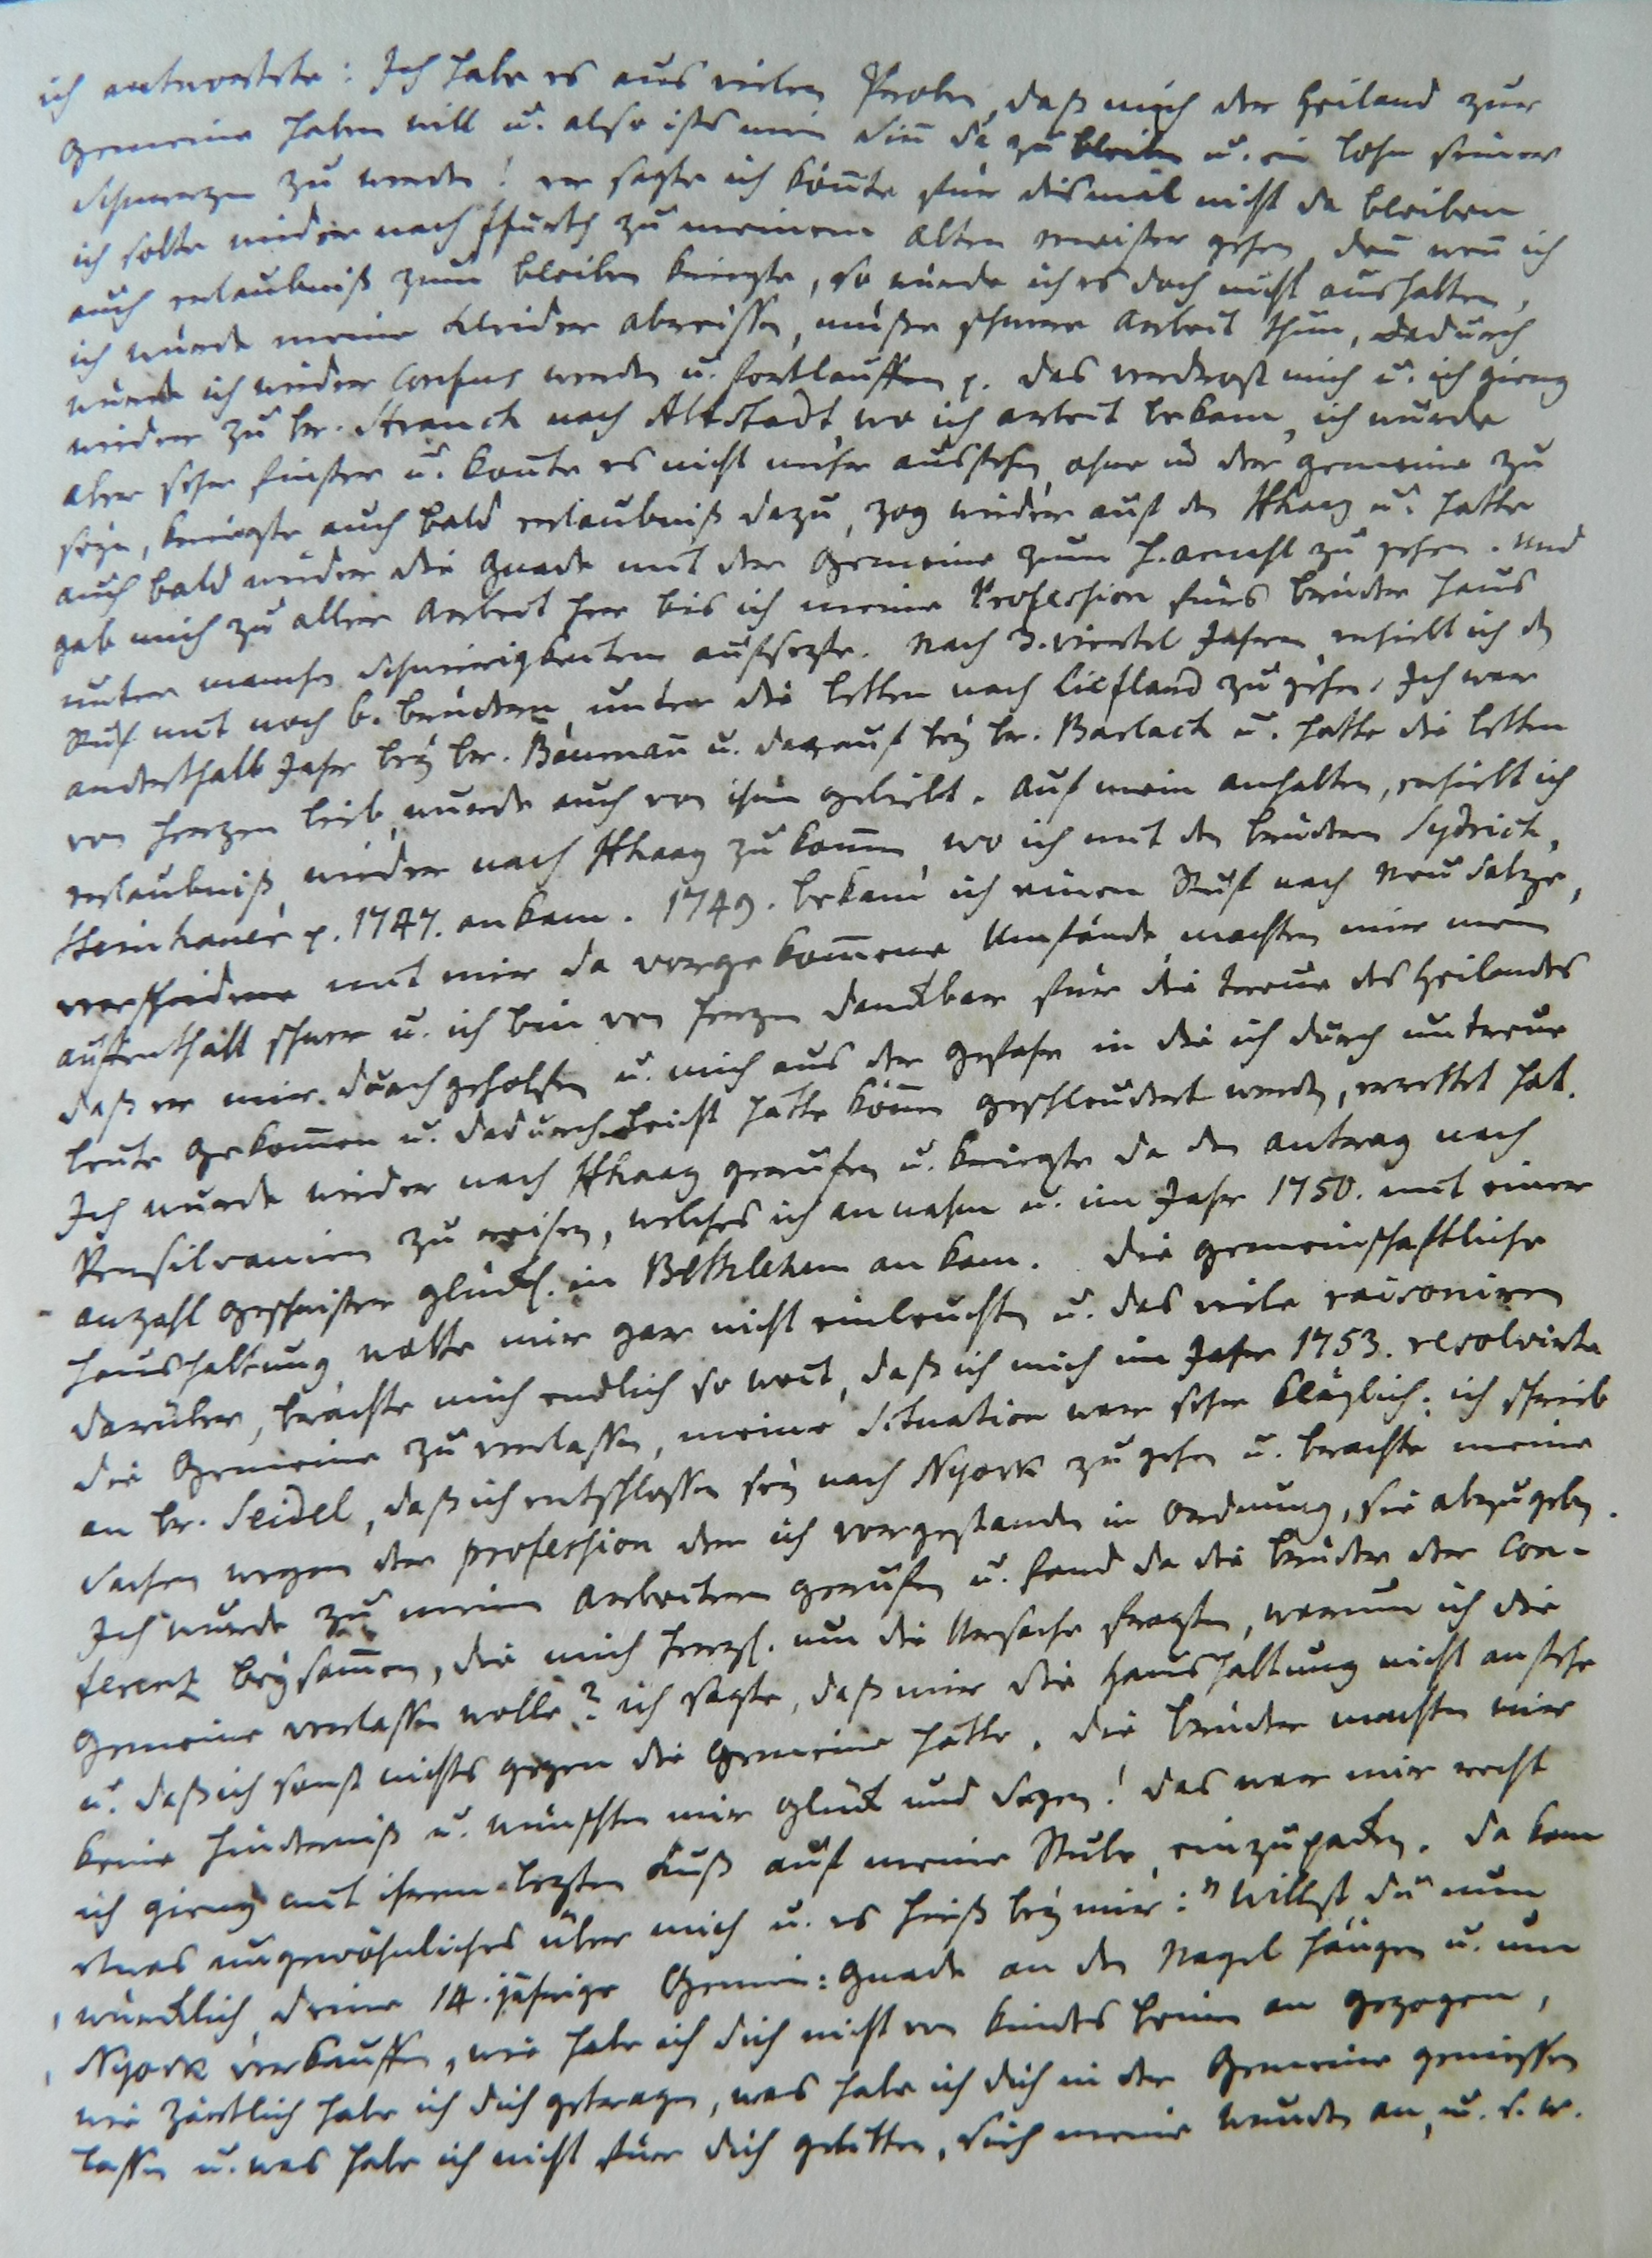 ich antwortete: Ich habe es aus vielen Proben, daß mich der Heiland zur
Gemeine haben will u. also ists mein Sin̅ da zu bleiben u. ein Lohn seiner
Schmerzen zu werden! er sagte ich kön̅te für dismal nicht da bleiben
ich solte wieder nach Ffurth zu meinem alten meister gehen, den̅ wen̅ ich
auch erlaubniß zum bleiben kriegte, so würde ich es doch nicht aushalten,
ich würde meine Kleider abreissen, müste schwere Arbeit thun, dadurch
würde ich wieder confus werden u. fortlauffen p. Das verdroß mich u. ich gieng
wieder zu br. Stranck nach Altstadt, wo ich arbeit bekam, ich wurde
aber sehr finster u. kon̅te es nicht mehr ausstehn, ohne in der gemeine zu
seyn, kriegte auch bald erlaubniß dazu, zog wieder auf den Hhaag u. hatte
auch bald wieder die Gnade mit der Gemeine zum h. Abendmahl zu gehen. Und
gab mich zu aller Arbeit her bis ich meine Profession fürs brüder Haus
unter manchen Schwierigkeiten aufsezte. Nach 3. viertel Jahren erhielt ich den
Ruf mit noch 6. brüdern, unter die Letten nach Liefland zu gehen. Ich war
anderthalb Jahr bey br. Bäuman̅ u. darauf bey br. Barlach u. hatte die Letten
von Herzen lieb, wurde auch von ihnen geliebt. Auf mein anhalten, erhielt ich
erlaubniß, wieder nach Hhaag zu kom̅en, wo ich mit den brüdern Sydrich,
Steinhauer p. 1747. ankam. 1749. bekam ich einen Ruf nach Neusalze,
verschiedene mit mir da vorgekom̅ene Umstände, machten mir mein
aufenthalt schwer u. ich bin von Herzen danckbar für die treue des Heilandes
daß er mir durchgeholfen u. mich aus der Gefahr in die ich durch untreue
leute gekom̅en u. dadurch leicht hätte kön̅en geschleudert werden, errettet hat.
Ich wurde wieder nach Hhaag geruffen u. kriegte da den antrag nach
Pensilvanien zu reisen, welches ich annahm u. im Jahr 1750. mit einer
anzahl geschwister glückl. in Bethlehem ankam. Die gemeinschaftliche
Haushaltung wolte mir gar nicht einleuchten u. das viele raisoniren
darüber, brachte mich endlich so weit, daß ich mich im Jahr 1753. resolvirte
die Gemeine zu verlassen, meine Situation war sehr kläglich; ich schrieb
an br. Seidel, daß ich entschlossen sey nach Nyork zu gehen u. brachte meine
Sachen wegen der profession der ich vorgestanden in Ordnung, sie abzugeben.
Ich wurde zu meinen Arbeitern geruffen u. fand da die brüder der Con-
ferenz beysam̅en, die mich herzl. um die Ursache fragten, warum ich die
Gemeine verlassen wolle? ich sagte, daß mir die Haushaltung nicht anstehe
u. daß ich sonst nichts gegen die Gemeine hätte. Die brüder machten mir
keine Hinderniß u. wünschten mir Glück und Segen! das war mir recht
ich gieng mit ihrem lezten Kuß auf meine Stube, einzupacken. Da kam
etwas ungewöhnliches über mich u. es hieß bey mir: "Willst du nun
würcklich, deine 14. jährige Gemein: Gnade an den Nagel hängen u. um
Nyork verkauffen, wie habe ich dich nicht von kindes beinen an gezogen,
wie zärtlich habe ich dich getragen, was habe ich dich in der Gemeine geniessen
lassen u. was habe ich nicht für dich gelitten, sieh meine Wunden an, u. s. w.